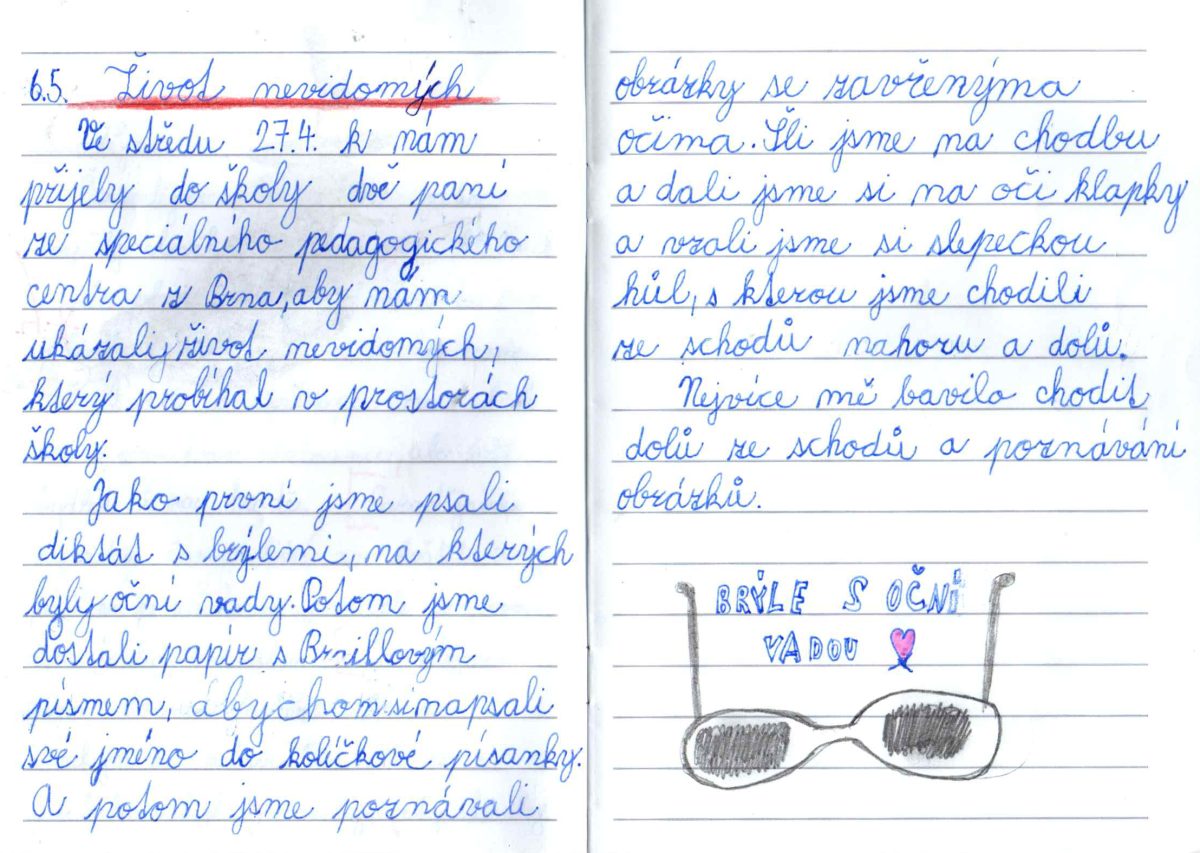 6.5. Život nevidomých
Ve středu 27.4. k nám
přijely do školy dvě paní
ze speciálního pedagogického
centra z Brna, aby nám
ukázaly život nevidomých,
který probíhal v prostorách
školy.
Jako první jsme psali
diktát s brýlemi, na kterých
byly oční vady. Potom jsme
dostali papír s Braillovým
písmem, abychom si napsali
své jméno do kolíčkové písanky.
A potom jsme poznávali
obrázky se zavřenýma
očima. Šli jsme na chodbu
a dali jsme si na oči klapky
a vzali jsme si slepeckou
hůl, s kterou jsme chodili
ze schodů nahoru a dolů.
Nejvíce mě bavilo chodit
dolů ze schodů a poznávání
obrázků.
BRÝLE S OČNÍ
VADOU